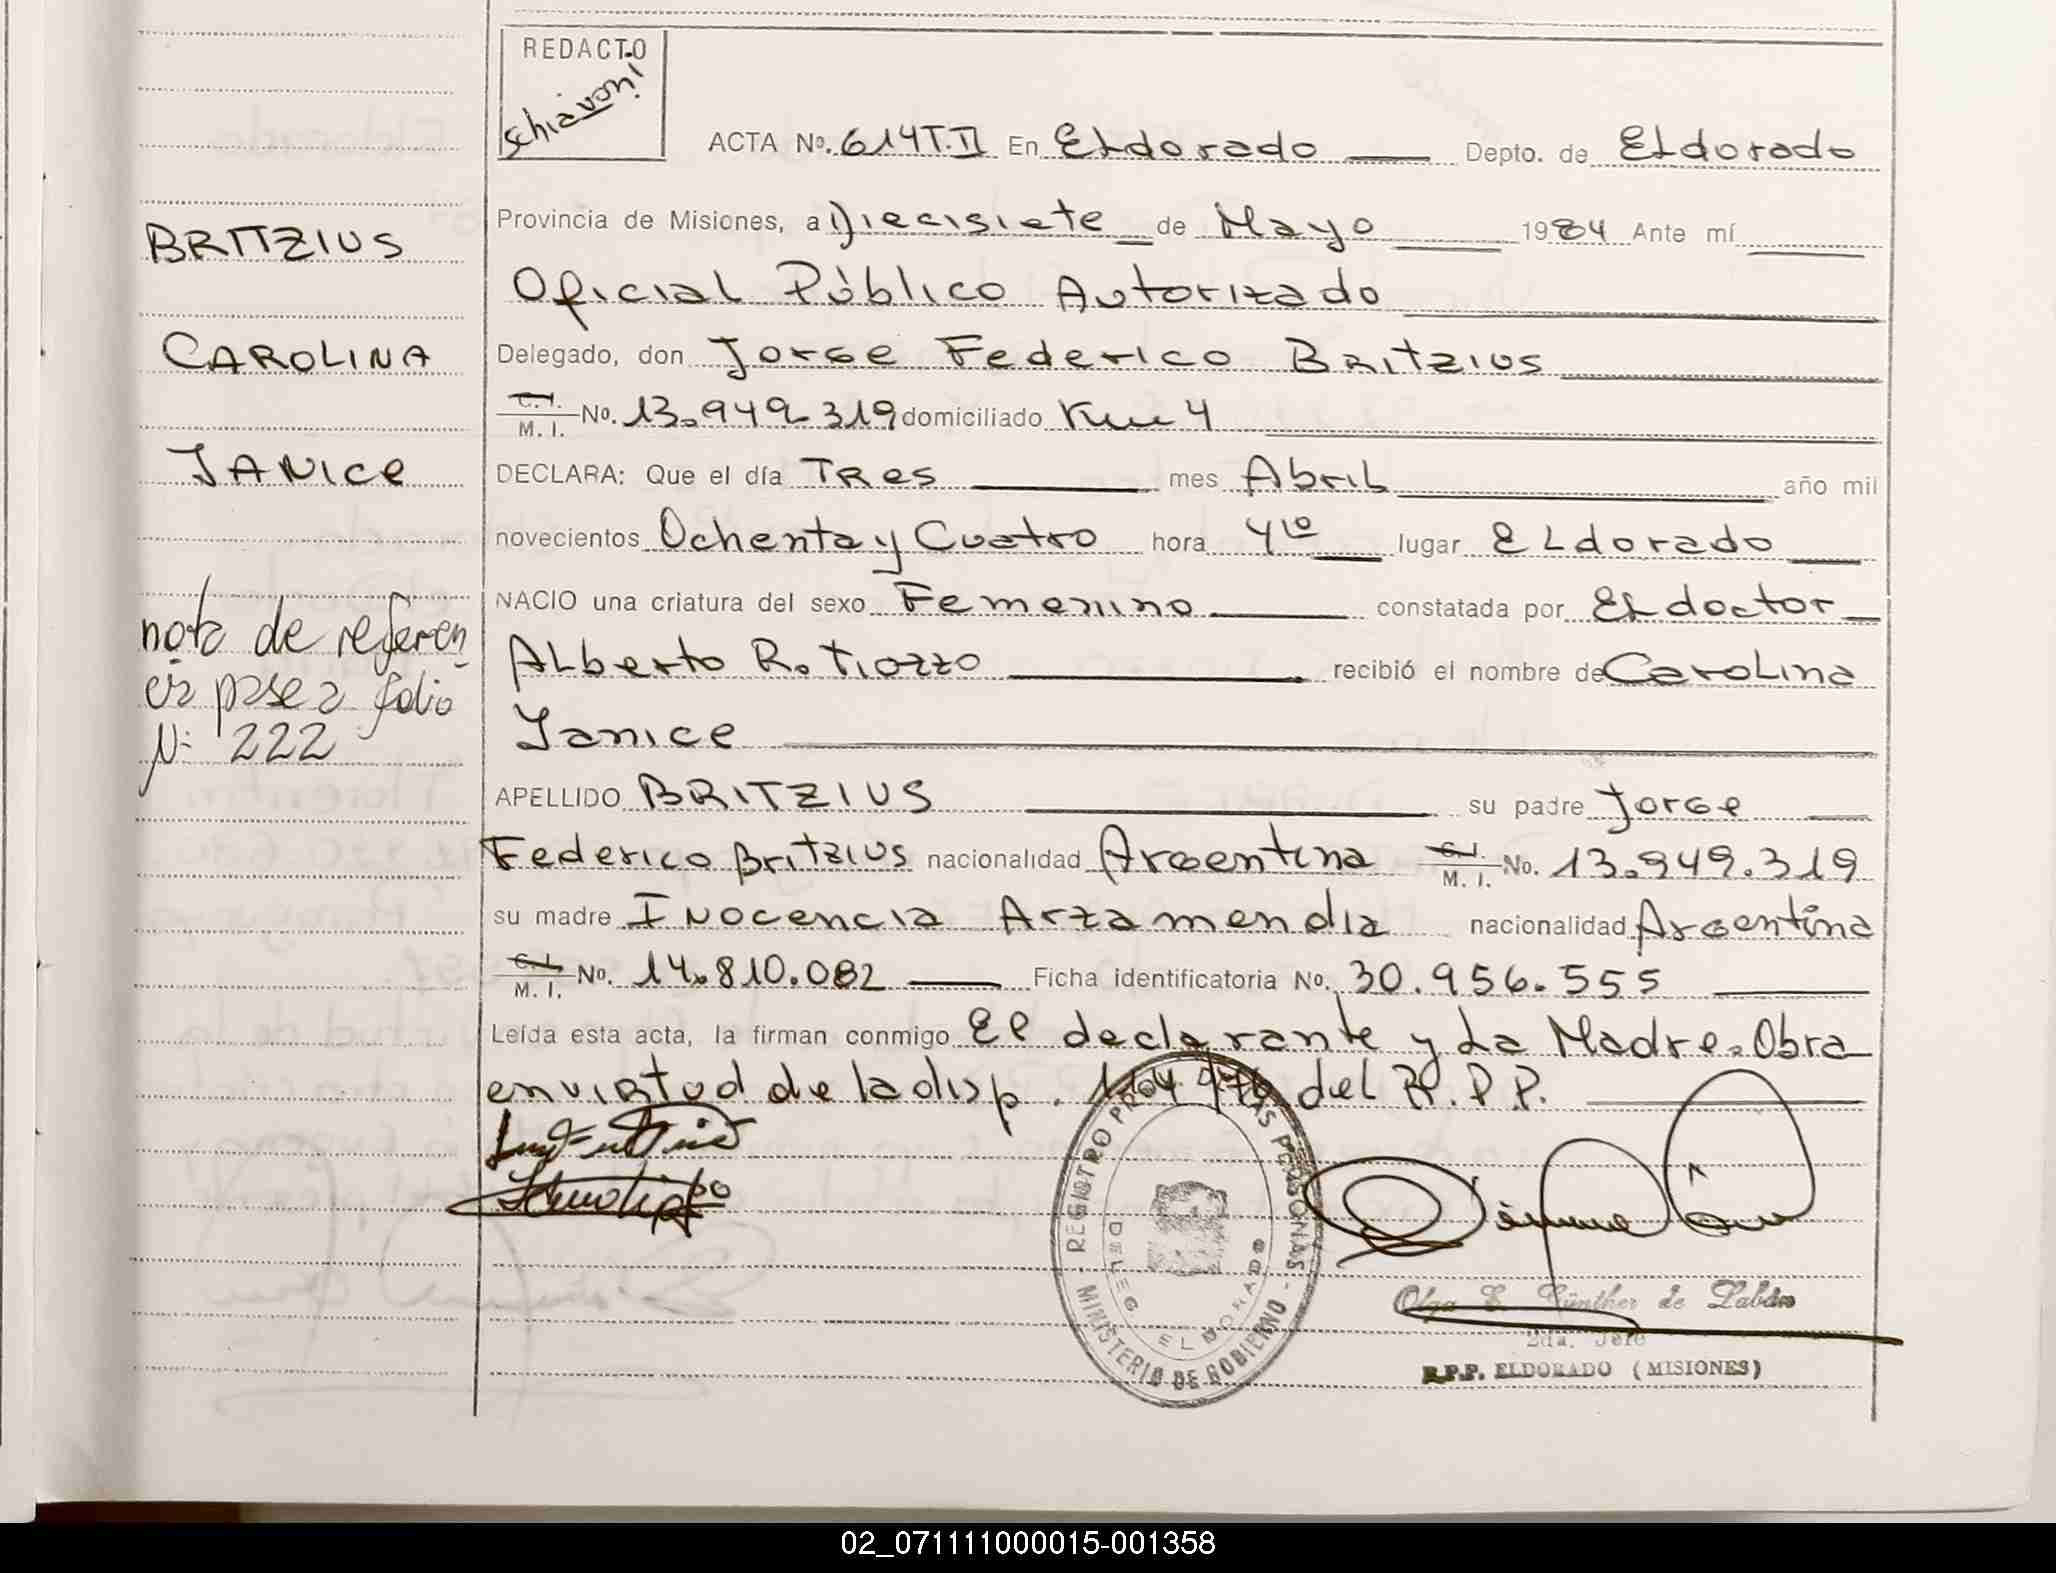 REDACTO
Schiavoni
ACTA No. 614 T.II En ELdorado Depto. de ELdorado
Provincia de Misiones, a Diecisiete de Mayo 1984 Ante mí
Oficial Público Autorizado
Delegado, don Jorge Federico Britzius
C.I. M.I. No. 13.949.319 domiciliado Km 4
DECLARA: Que el día Tres mes Abril año mil
novecientos Ochenta y Cuatro hora 4 10 lugar ELdorado
NACIO una criatura del sexo Femenino constatada por EL doctor
Alberto R. Tiozzo recibió el nombre de Carolina
Janice
APELLIDO BRITZIUS su padre Jorge
Federico Britzius nacionalidad Argentina C.I. M.I. No. 13.949.319
su madre Inocencia Arzamendia nacionalidad Argentina
C.I. M.I. No. 14.810.082 Ficha identificatoria No. 30.956.555
Leída esta acta, la firman conmigo El declarante y La Madre. Obra
en virtud de la disp. del R.P.P.
BRITZIUS
CAROLINA
JANICE
nota de referen
cia pase a folio
N: 222
REGISTRO PROV. DE LAS PERSONAS - MINISTERIO DE GOBIERNO -
DELEG ELDORADO
Olga E. Günther de
2da. Jefe
R.P.P. ELDORADO (MISIONES)
02_071111000015-001358